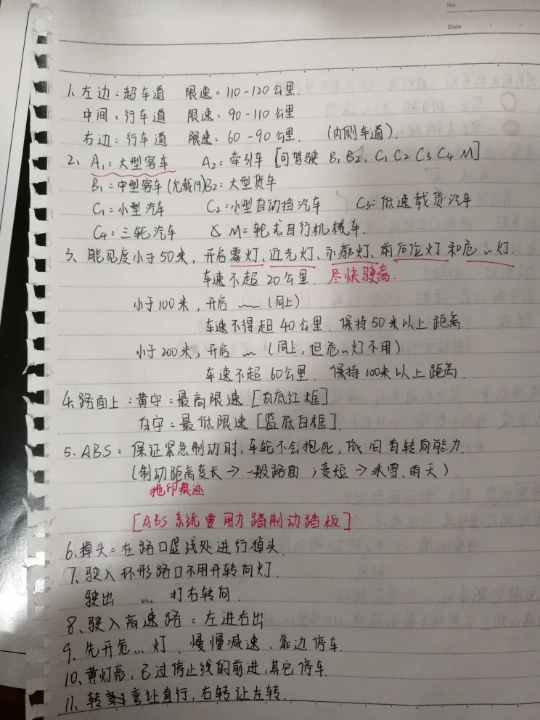 No.
Date
1、左边：超车道 限速：110-120公里
中间：行车道 限速：90-110公里
右边：行车道 限速：60-90公里. (内侧车道).
2、A1：大型客车 A2：牵引车 [可驾驶 B1 B2、C1 C2 C3 C4 M]
B1：中型客车 B2：大型货车
C1：小型汽车 C2：小型自动挡汽车 C3：低速载货汽车
C4：三轮汽车 & M：轮式自行机械车.
3、能见度小于50米，开启雾灯、近光灯、示廓灯、前后位灯 和危〃灯.
车速不超20公里. 尽快驶离.
小于100米，开启 〃 (同上)
车速不得超40公里. 保持50米以上距离
小于200米，开启 〃 (同上，但危〃灯不用)
车速不超60公里. 保持100米以上距离.
4、路面上：黄字：最高限速 [白底红框]
白字：最低限速 [蓝底白框].
5、ABS：保证紧急制动时，车轮不会抱死，依旧有转向能力.
(制动距离变长→一般路面，变短→冰雪、雨天)
拖印痕迹
[ABS系统要用力踏制动踏板]
6、掉头：在路口虚线处进行掉头.
7、驶入环形路口不用开转向灯.
驶出 〃 打右转向.
8、驶入高速路：左进右出
9、先开危…灯，慢慢减速，靠边停车.
10、黄灯亮，已过停止线的前进，其它停车.
11、转弯让直行，右转让左转.